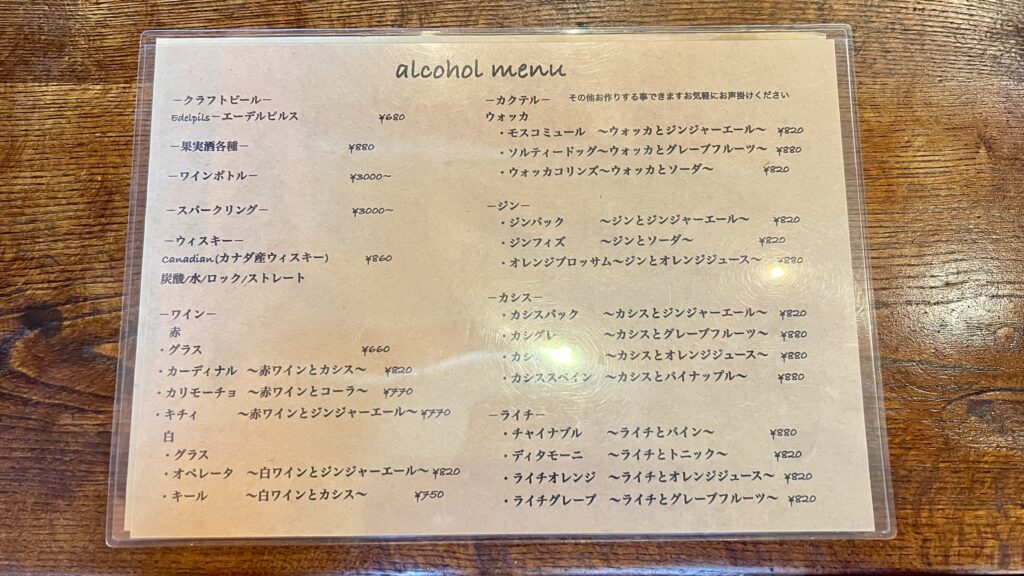 alcohol menu
－クラフトビール－
Edelpils－エーデルピルス ¥680
－果実酒各種－ ¥880
－ワインボトル－ ¥3000～
－スパークリング－ ¥3000～
－ウィスキー－
Canadian(カナダ産ウィスキー) ¥860
炭酸/水/ロック/ストレート
－ワイン－
赤
・グラス ¥660
・カーディナル ～赤ワインとカシス～ ¥820
・カリモーチョ ～赤ワインとコーラ～ ¥770
・キティ ～赤ワインとジンジャーエール～ ¥770
白
・グラス
・オペレータ ～白ワインとジンジャーエール～ ¥820
・キール ～白ワインとカシス～ ¥750
－カクテル－ その他お作りする事できますお気軽にお声掛けください
ウォッカ
・モスコミュール ～ウォッカとジンジャーエール～ ¥820
・ソルティードッグ～ウォッカとグレープフルーツ～ ¥880
・ウォッカコリンズ～ウォッカとソーダ～ ¥820
－ジン－
・ジンバック ～ジンとジンジャーエール～ ¥820
・ジンフィズ ～ジンとソーダ～ ¥820
・オレンジブロッサム～ジンとオレンジジュース～ ¥880
－カシス－
・カシスバック ～カシスとジンジャーエール～ ¥820
・カシグレ ～カシスとグレープフルーツ～ ¥880
・カシス ～カシスとオレンジジュース～ ¥880
・カシススペイン ～カシスとパイナップル～ ¥880
－ライチ－
・チャイナブル ～ライチとパイン～ ¥880
・ディタモーニ ～ライチとトニック～ ¥820
・ライチオレンジ ～ライチとオレンジジュース～ ¥820
・ライチグレープ ～ライチとグレープフルーツ～ ¥820